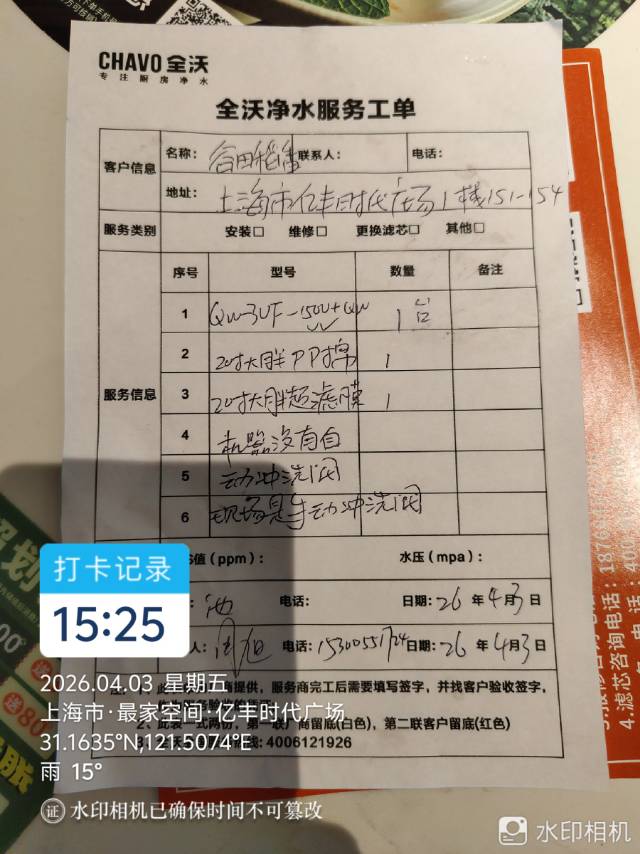 CHAVO 全沃
专注厨房净水
全沃净水服务工单
客户信息
名称：谷田稻香 联系人： 电话：
地址：上海市亿丰时代广场1栋151-154
服务类别 安装□ 维修□ 更换滤芯□ 其他□
服务信息
序号 型号 数量 备注
1 QW-3UF-1500+QW 1台
2 20吋大胖PP棉 1
3 20吋大胖超滤膜 1
4 机器没有自
5 动冲洗阀
6 现场是手动冲洗阀
值（ppm）： 水压（mpa）：
电话： 日期：26 年 4月3 日
人：周旭 电话：15300551724 日期：26 年 4月3 日
商提供，服务商完工后需要填写签字，并找客户验收签字，
2、此表一式两份，第一联厂商留底(白色)，第二联客户留底(红色)
线：4006121926
打卡记录
15:25
2026.04.03 星期五
上海市·最家空间·亿丰时代广场
31.1635°N,121.5074°E
雨 15°
证 水印相机已确保时间不可篡改
水印相机
4.滤芯咨询电话：400